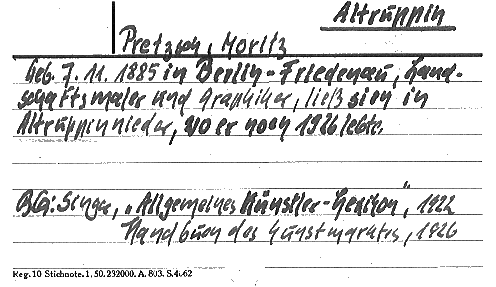 Altruppin
Pretzsch, Moritz
Geb. 7. 11. 1885 in Berlin-Friedenau, Land-
schaftsmaler und Graphiker, ließ sich in
Altruppin nieder, wo er noch 1926 lebte.
BG: Singer, "Allgemeines Künstler-Lexikon", 1922
Handbuch des Kunstmarktes, 1926
Reg. 10 Stichnote. 1, 50. 232000. A. 803. S. 4062